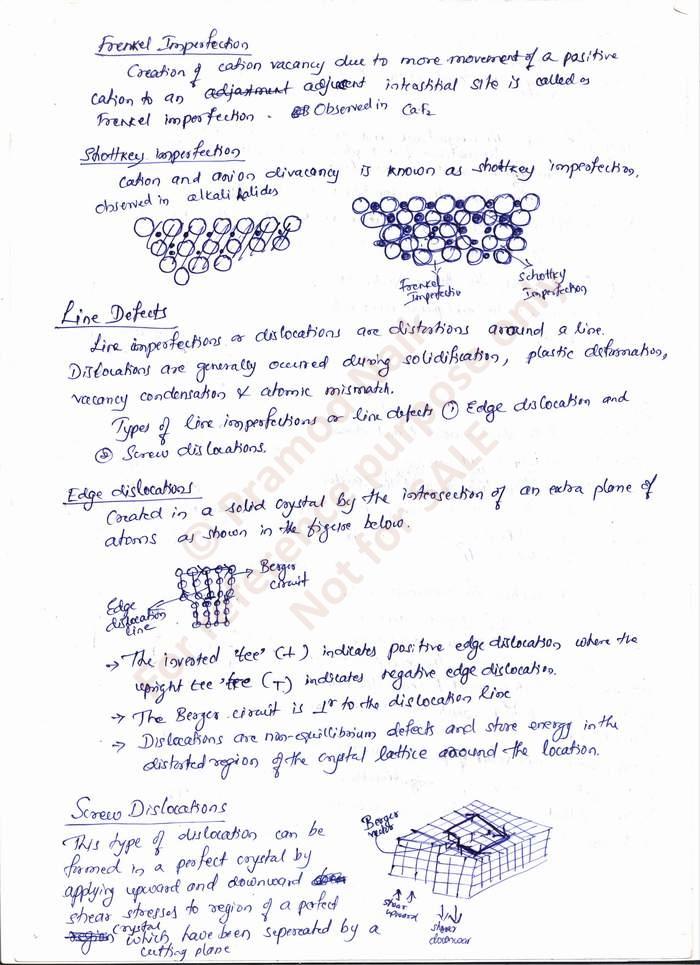 Frenkel Imperfection
Creation of cation vacancy due to more movement of a positive
cation to an adjustment adjucent interstitial site is called as
Frenkel imperfection. Observed in CaF2
Shottkey imperfection
Cation and anion divacancy is known as shottkey imperfection.
observed in alkali halides
Frenkel
Imperfectio
Schottky
Imperfection
Line Defects
Line imperfections or dislocations are distortions around a line.
Dislocations are generally occurred during solidification, plastic deformation,
vacancy condensation & atomic mismatch.
Types of line imperfections or line defects ① Edge dislocation and
② Screw dislocations.
Edge dislocations
Created in a solid crystal by the intersection of an extra plane of
atoms as shown in the figure below.
Berger
circuit
Edge
dislocation
line
→ The inverted 'tee' (⊥) indicates positive edge dislocation where the
upright tee 'tee (T) indicates negative edge dislocation.
→ The Berger circuit is ⊥r to the dislocation line
→ Dislocations are non-equilibrium defects and store energy in the
distorted region of the crystal lattice around the location.
Screw Dislocations
This type of dislocation can be
formed in a perfect crystal by
applying upward and downward
shear stresses to region of a perfect
region crystal which have been seperated by a
cutting plane
Berger
vector
shear
upward
shear
downwar
© Pramod Naik
For reference purpose only
Not for SALE